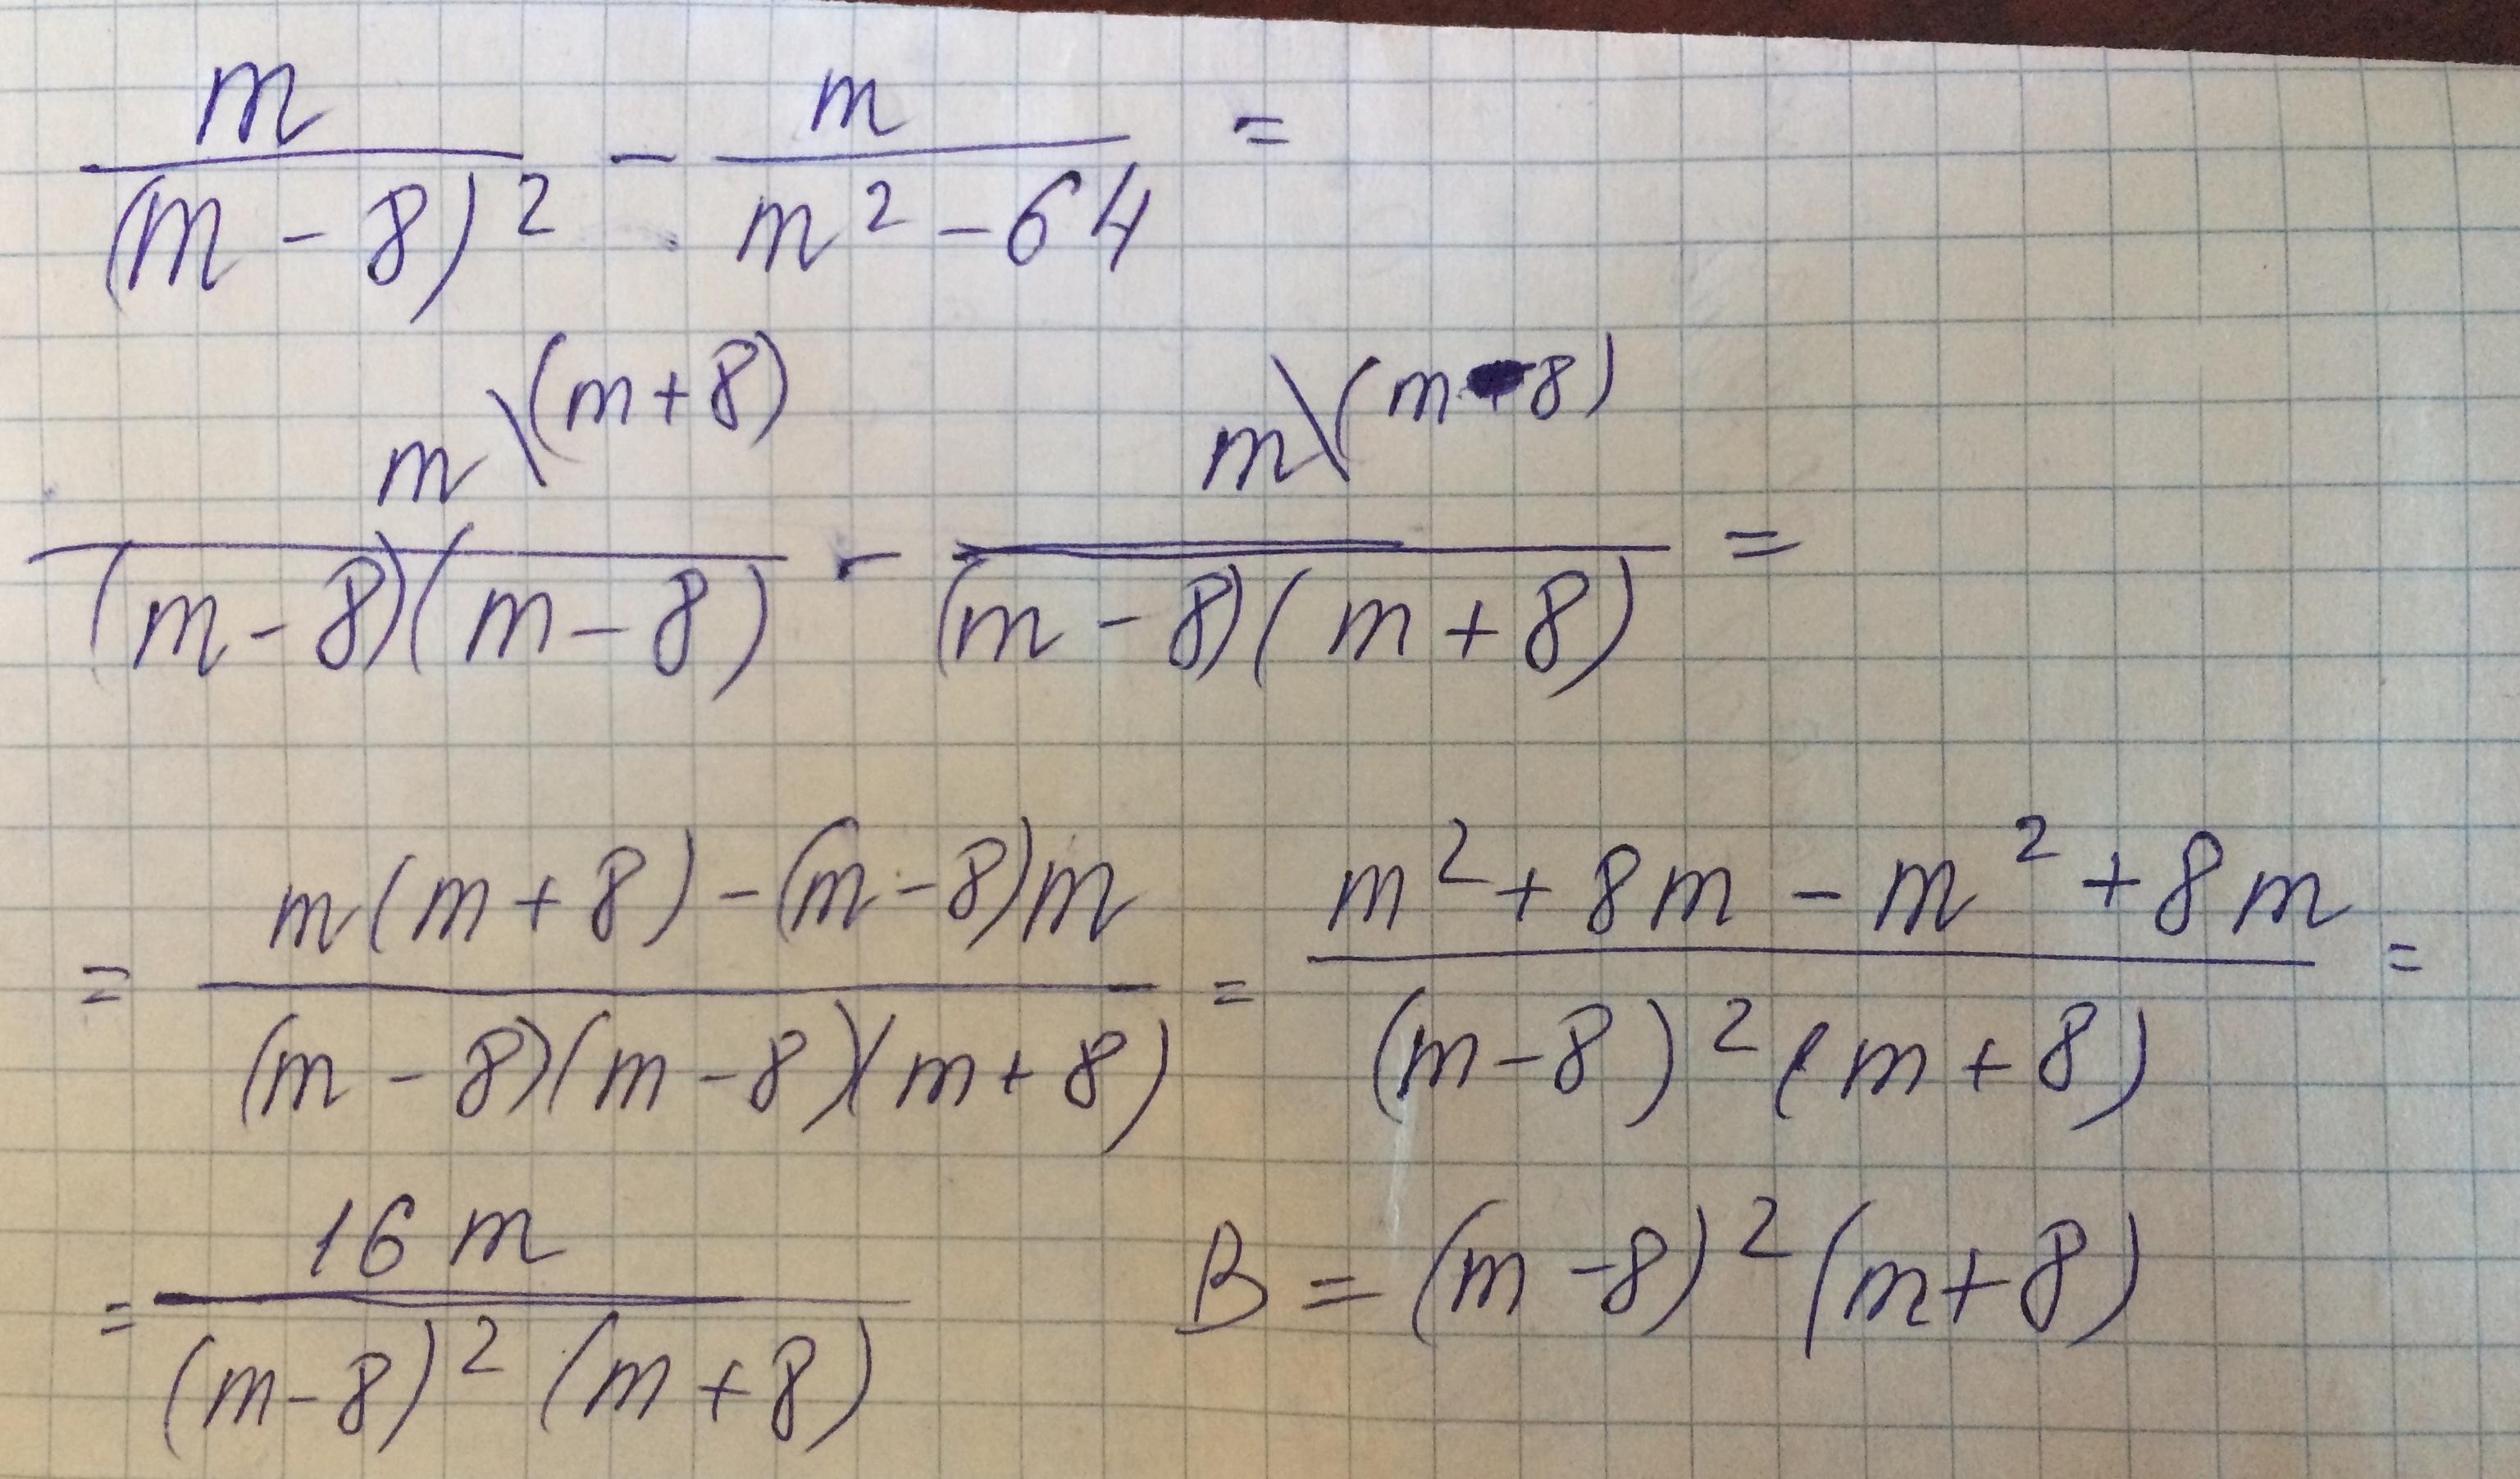 m/(m - 8)² - m/(m² - 64) =
m\(m+8)/(m-8)(m-8) - m\(m-8)/(m-8)(m+8) =
= m(m+8)-(m-8)m/(m-8)(m-8)(m+8) = m²+8m-m²+8m/(m-8)²(m+8) =
= 16m/(m-8)²(m+8) B = (m-8)²(m+8)